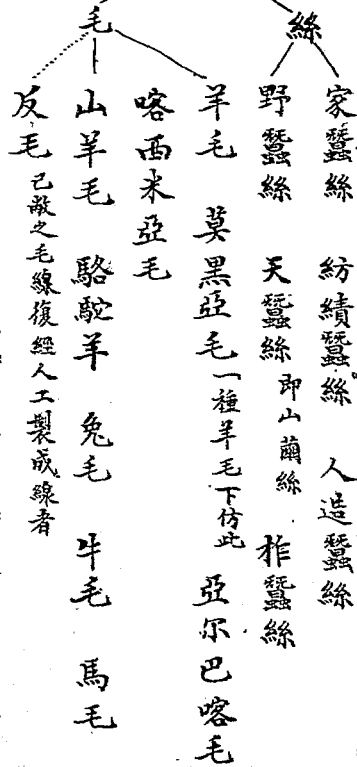 絲
家蠶絲　紡績蠶絲　人造蠶絲
野蠶絲　天蠶絲即山繭絲　柞蠶絲
毛
羊毛　莫黑亞毛一種羊毛下仿此　亞尔巴喀毛
喀西米亞毛
山羊毛　駱駝羊　兔毛　牛毛　馬毛
反毛已敝之毛線復經人工製成線者